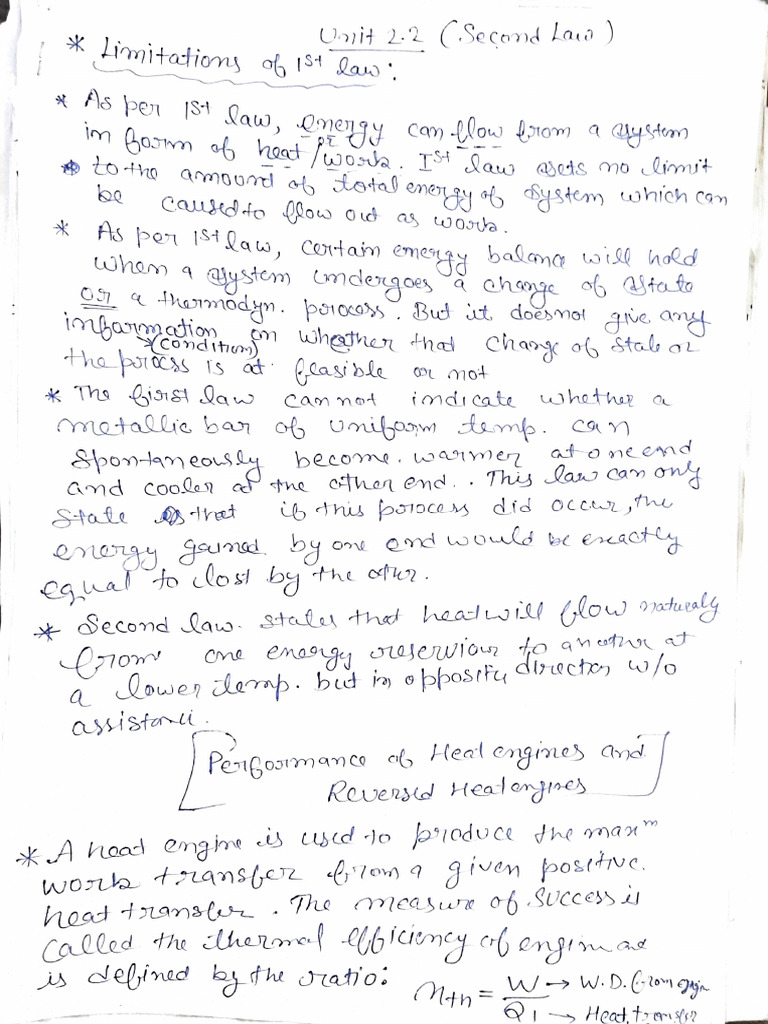 Unit 2.2 (Second Law)
* Limitations of 1st law:
* As per 1st law, energy can flow from a system
in form of heat/or work. Ist law sets no limit
to the amount of total energy of system which can
be caused to flow out as work.
* As per 1st law, certain energy balance will hold
when a system undergoes a change of state
or a thermodyn. process. But it does not give any
information on whether that change of state or
(condition)
the process is at feasible or not
* The first law cannot indicate whether a
metallic bar of uniform temp. can
spontaneously become warmer at one end
and cooler at the other end. This law can only
state that if this process did occur, the
energy gained by one end would be exactly
equal to lost by the other.
* Second law states that heat will flow naturally
from one energy reserviour to another at
a lower temp. but in opposite direction w/o
assistance.
Performance of Heat engines and
Reversed Heat engines
* A head engine is used to produce the maxm
work transfer from a given positive
heat transfer. The measure of success is
called the thermal efficiency of engine and
is defined by the ratio:
ηth = W → W.D. from engin
Q1 → Heat transfer